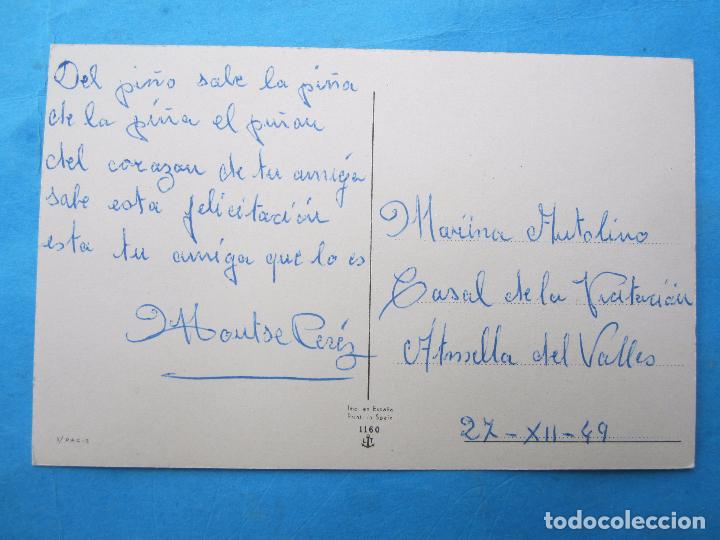 Del piño sabe la piña
de la piña el piñon
del corazon de tu amiga
sabe esta felicitación
esta tu amiga que lo es
Montse Peréz
Mariina Mutolino
Casal de la Vicitación
Atmella del Valles
27-XII-49
Imp. en España
Print. in Spain
1160
todocoleccion
todocoleccion.net